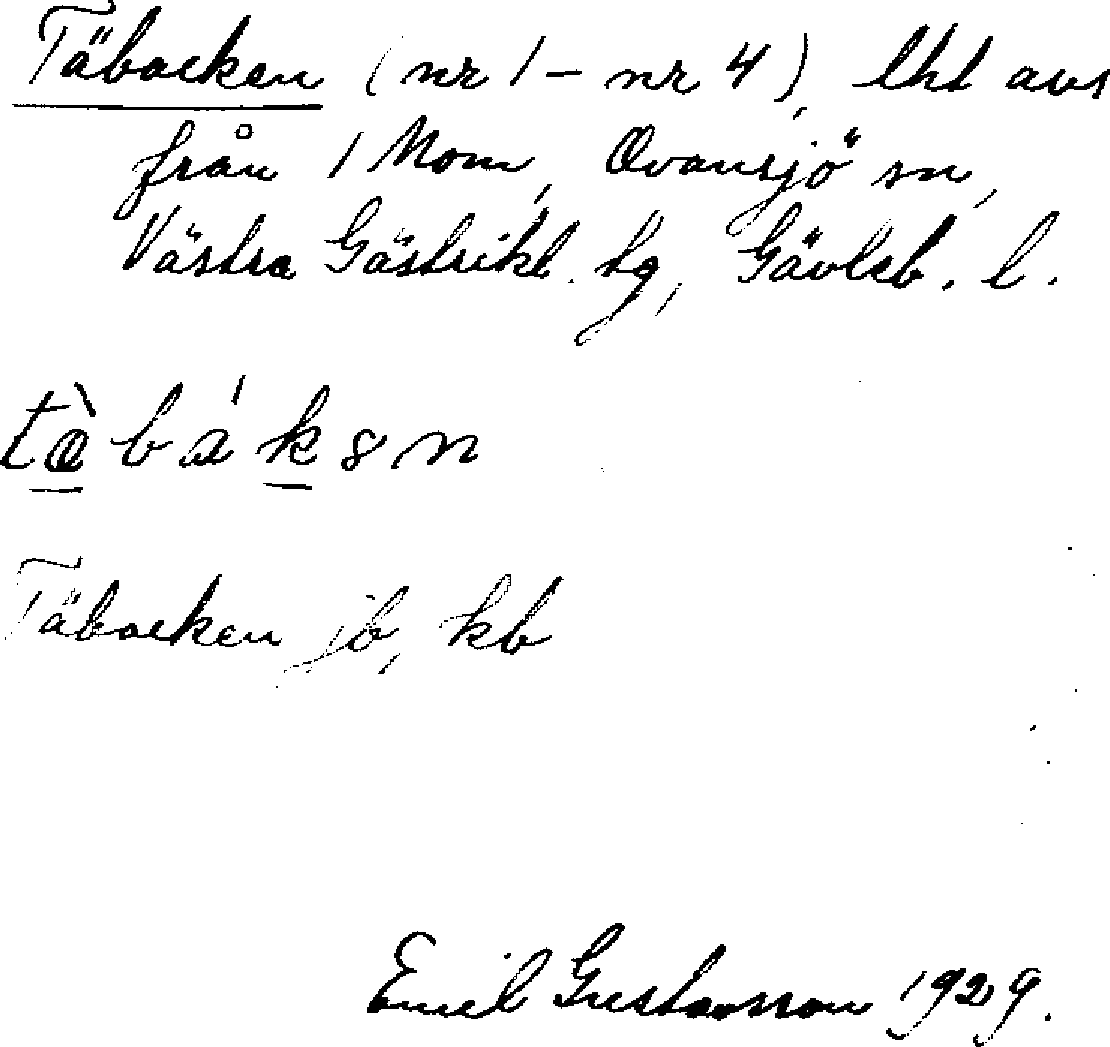 Täbacken (nr 1 – nr 4), lht avs
från 1 Mom, Ovansjö sn,
Västra Gästrikl. tg, Gävleb. l.
Täbacken jb, kb
Emil Gustavsson 1929.